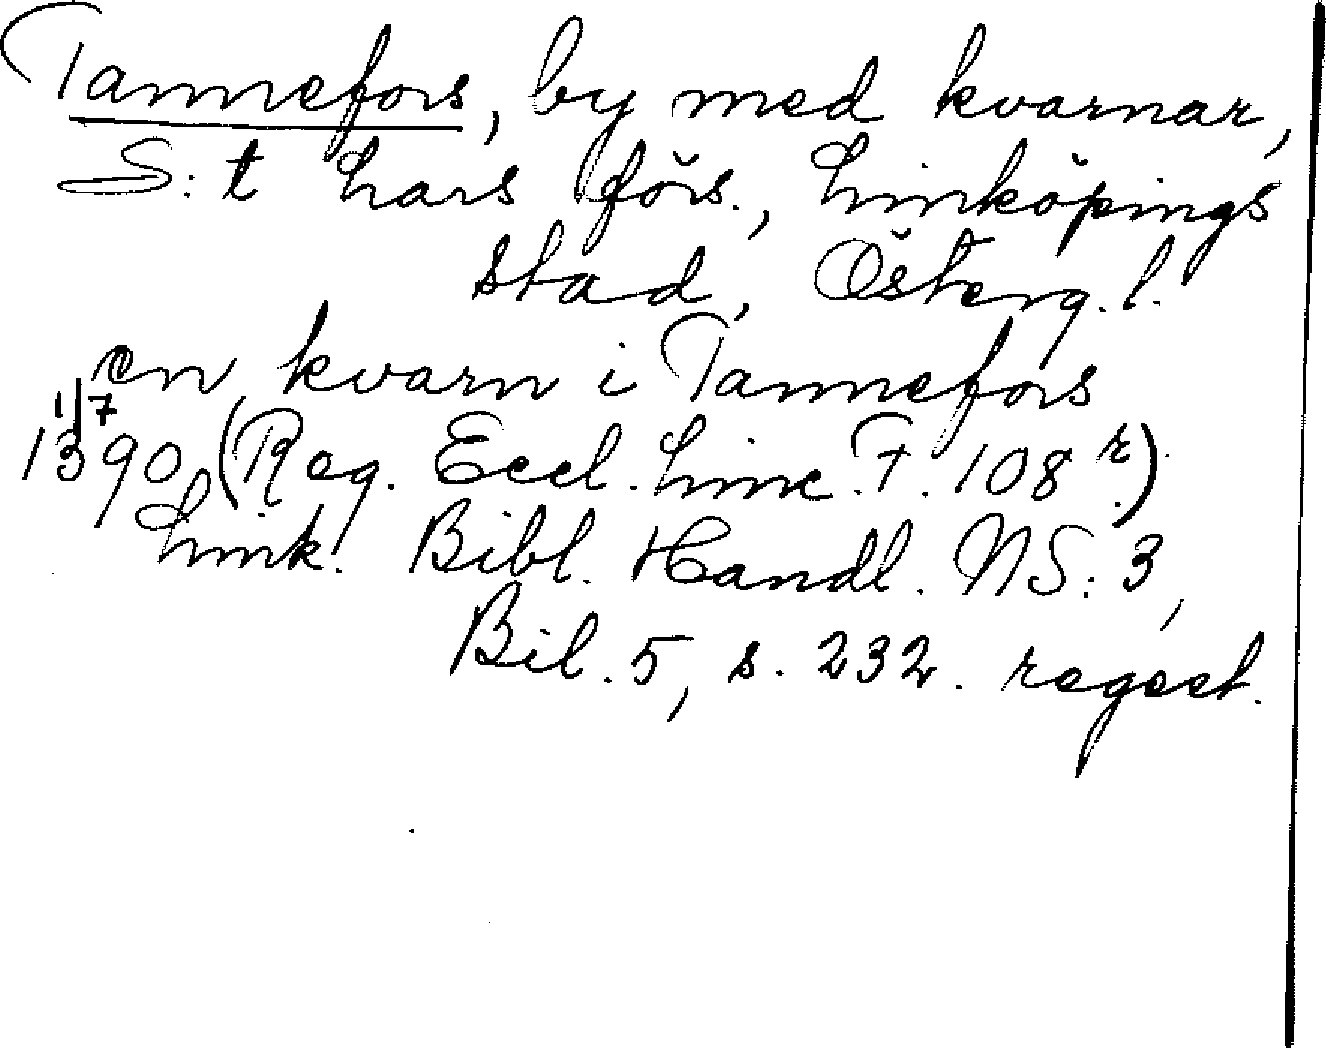 Tannefors, by med kvarnar,
S:t Lars förs., Linköpings
stad, Österg. l.
en kvarn i Tannefors
1/7
1390 (Reg. Eccl. Linc. F. 108 r.)
Link. Bibl. Handl. NS: 3,
Bil. 5, s. 232. regest.